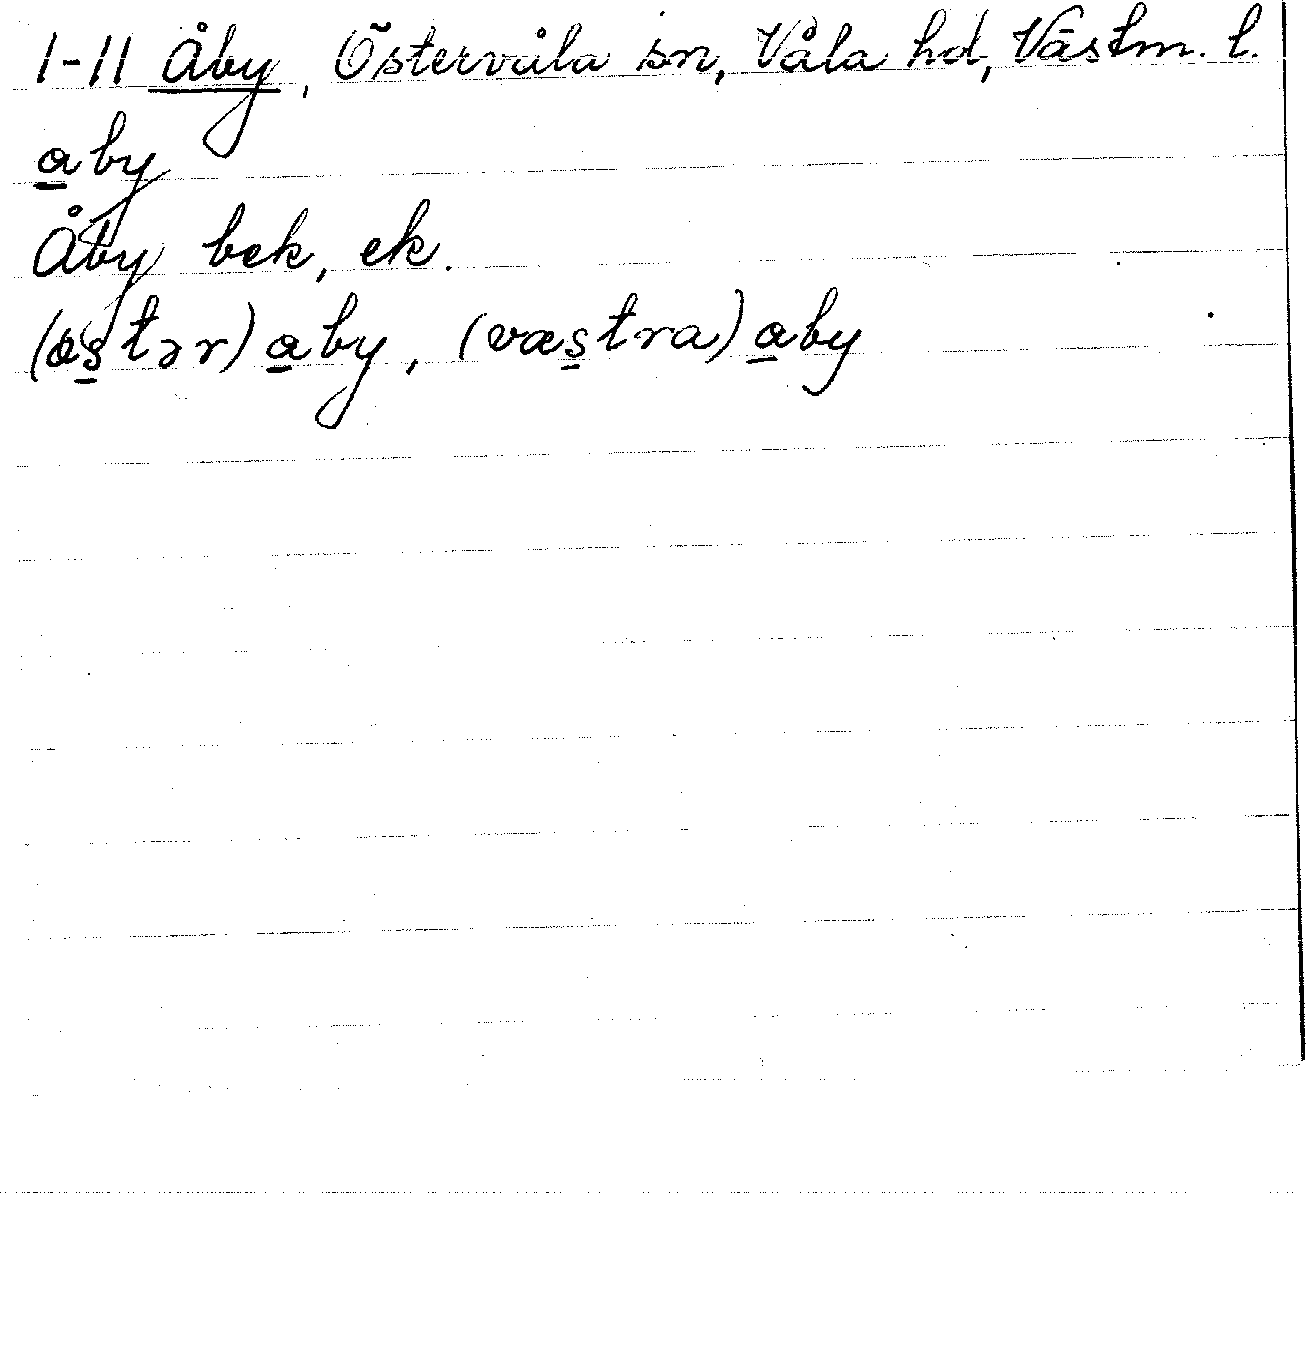 1-11 Åby, Östervåla sn, Våla hd, Västm. l.
a̲by
Åby bek, ek.
(øs̲tər) a̲by, (væs̲tra) a̲by